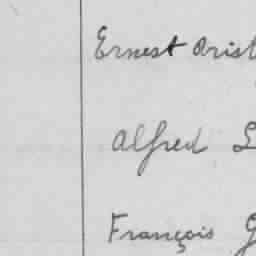 Ernest Arist
Alfred L
François G